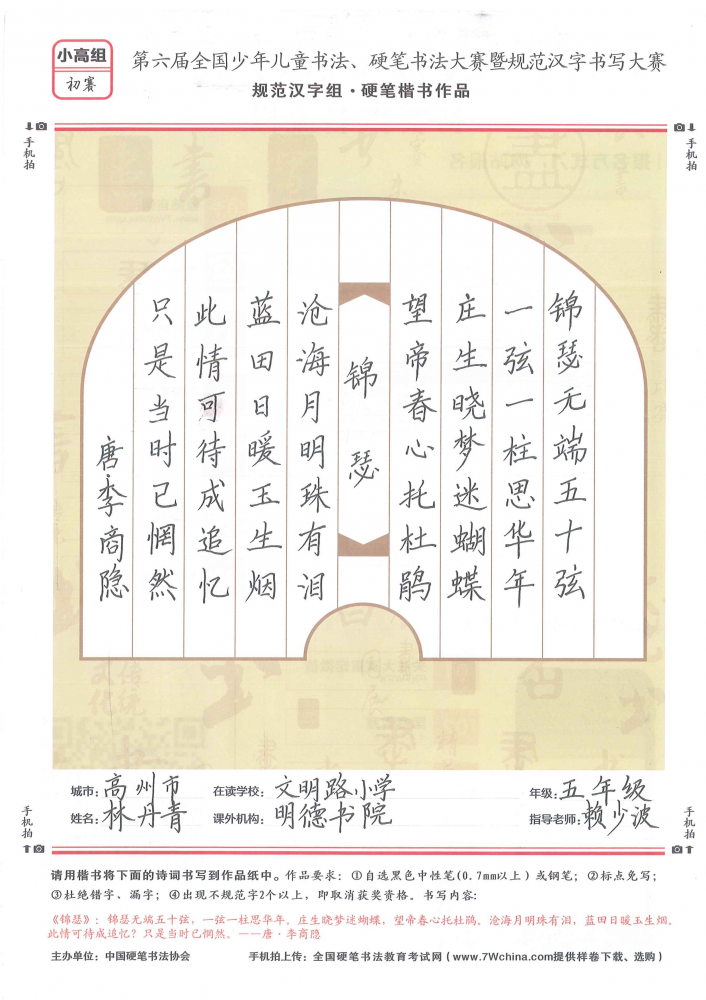 小高组
初赛
第六届全国少年儿童书法、硬笔书法大赛暨规范汉字书写大赛
规范汉字组·硬笔楷书作品
手机拍
手机拍
锦瑟无端五十弦
一弦一柱思华年
庄生晓梦迷蝴蝶
望帝春心托杜鹃
锦瑟
沧海月明珠有泪
蓝田日暖玉生烟
此情可待成追忆
只是当时已惘然
唐·李商隐
城市：高州市 在读学校：文明路小学 年级：五年级
姓名：林丹青 课外机构：明德书院 指导老师：赖少波
手机拍
手机拍
请用楷书将下面的诗词书写到作品纸中。作品要求：①自选黑色中性笔(0.7mm以上)或钢笔；②标点免写；
③杜绝错字、漏字；④出现不规范字2个以上，即取消获奖资格。书写内容：
《锦瑟》：锦瑟无端五十弦，一弦一柱思华年。庄生晓梦迷蝴蝶，望帝春心托杜鹃。沧海月明珠有泪，蓝田日暖玉生烟。
此情可待成追忆？只是当时已惘然。——唐·李商隐
主办单位：中国硬笔书法协会 手机拍上传：全国硬笔书法教育考试网（www.7Wchina.com提供样卷下载、选购）